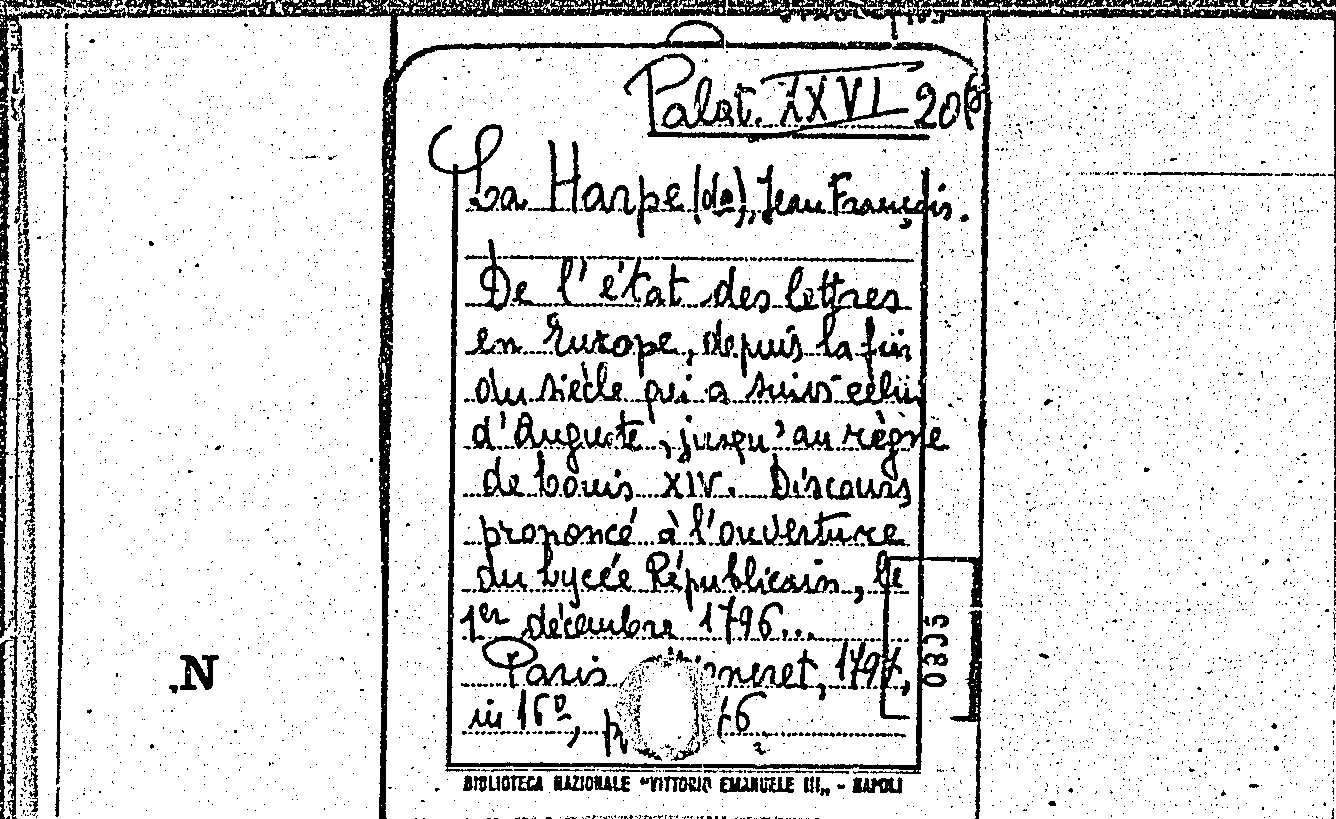 Palat. XXVI 206
La Harpe (de), Jean François.
De l'état des lettres
en Europe, depuis la fin
du siècle qui a suivi celui
d'Auguste, jusqu'au règne
de Louis XIV. Discours
prononcé à l'ouverture
du Lycée Républicain, le
1er décembre 1796...
Paris neret, 1797,
in 16º, p 76
0835
.N
BIBLIOTECA NAZIONALE "VITTORIO EMANUELE III„ - NAPOLI